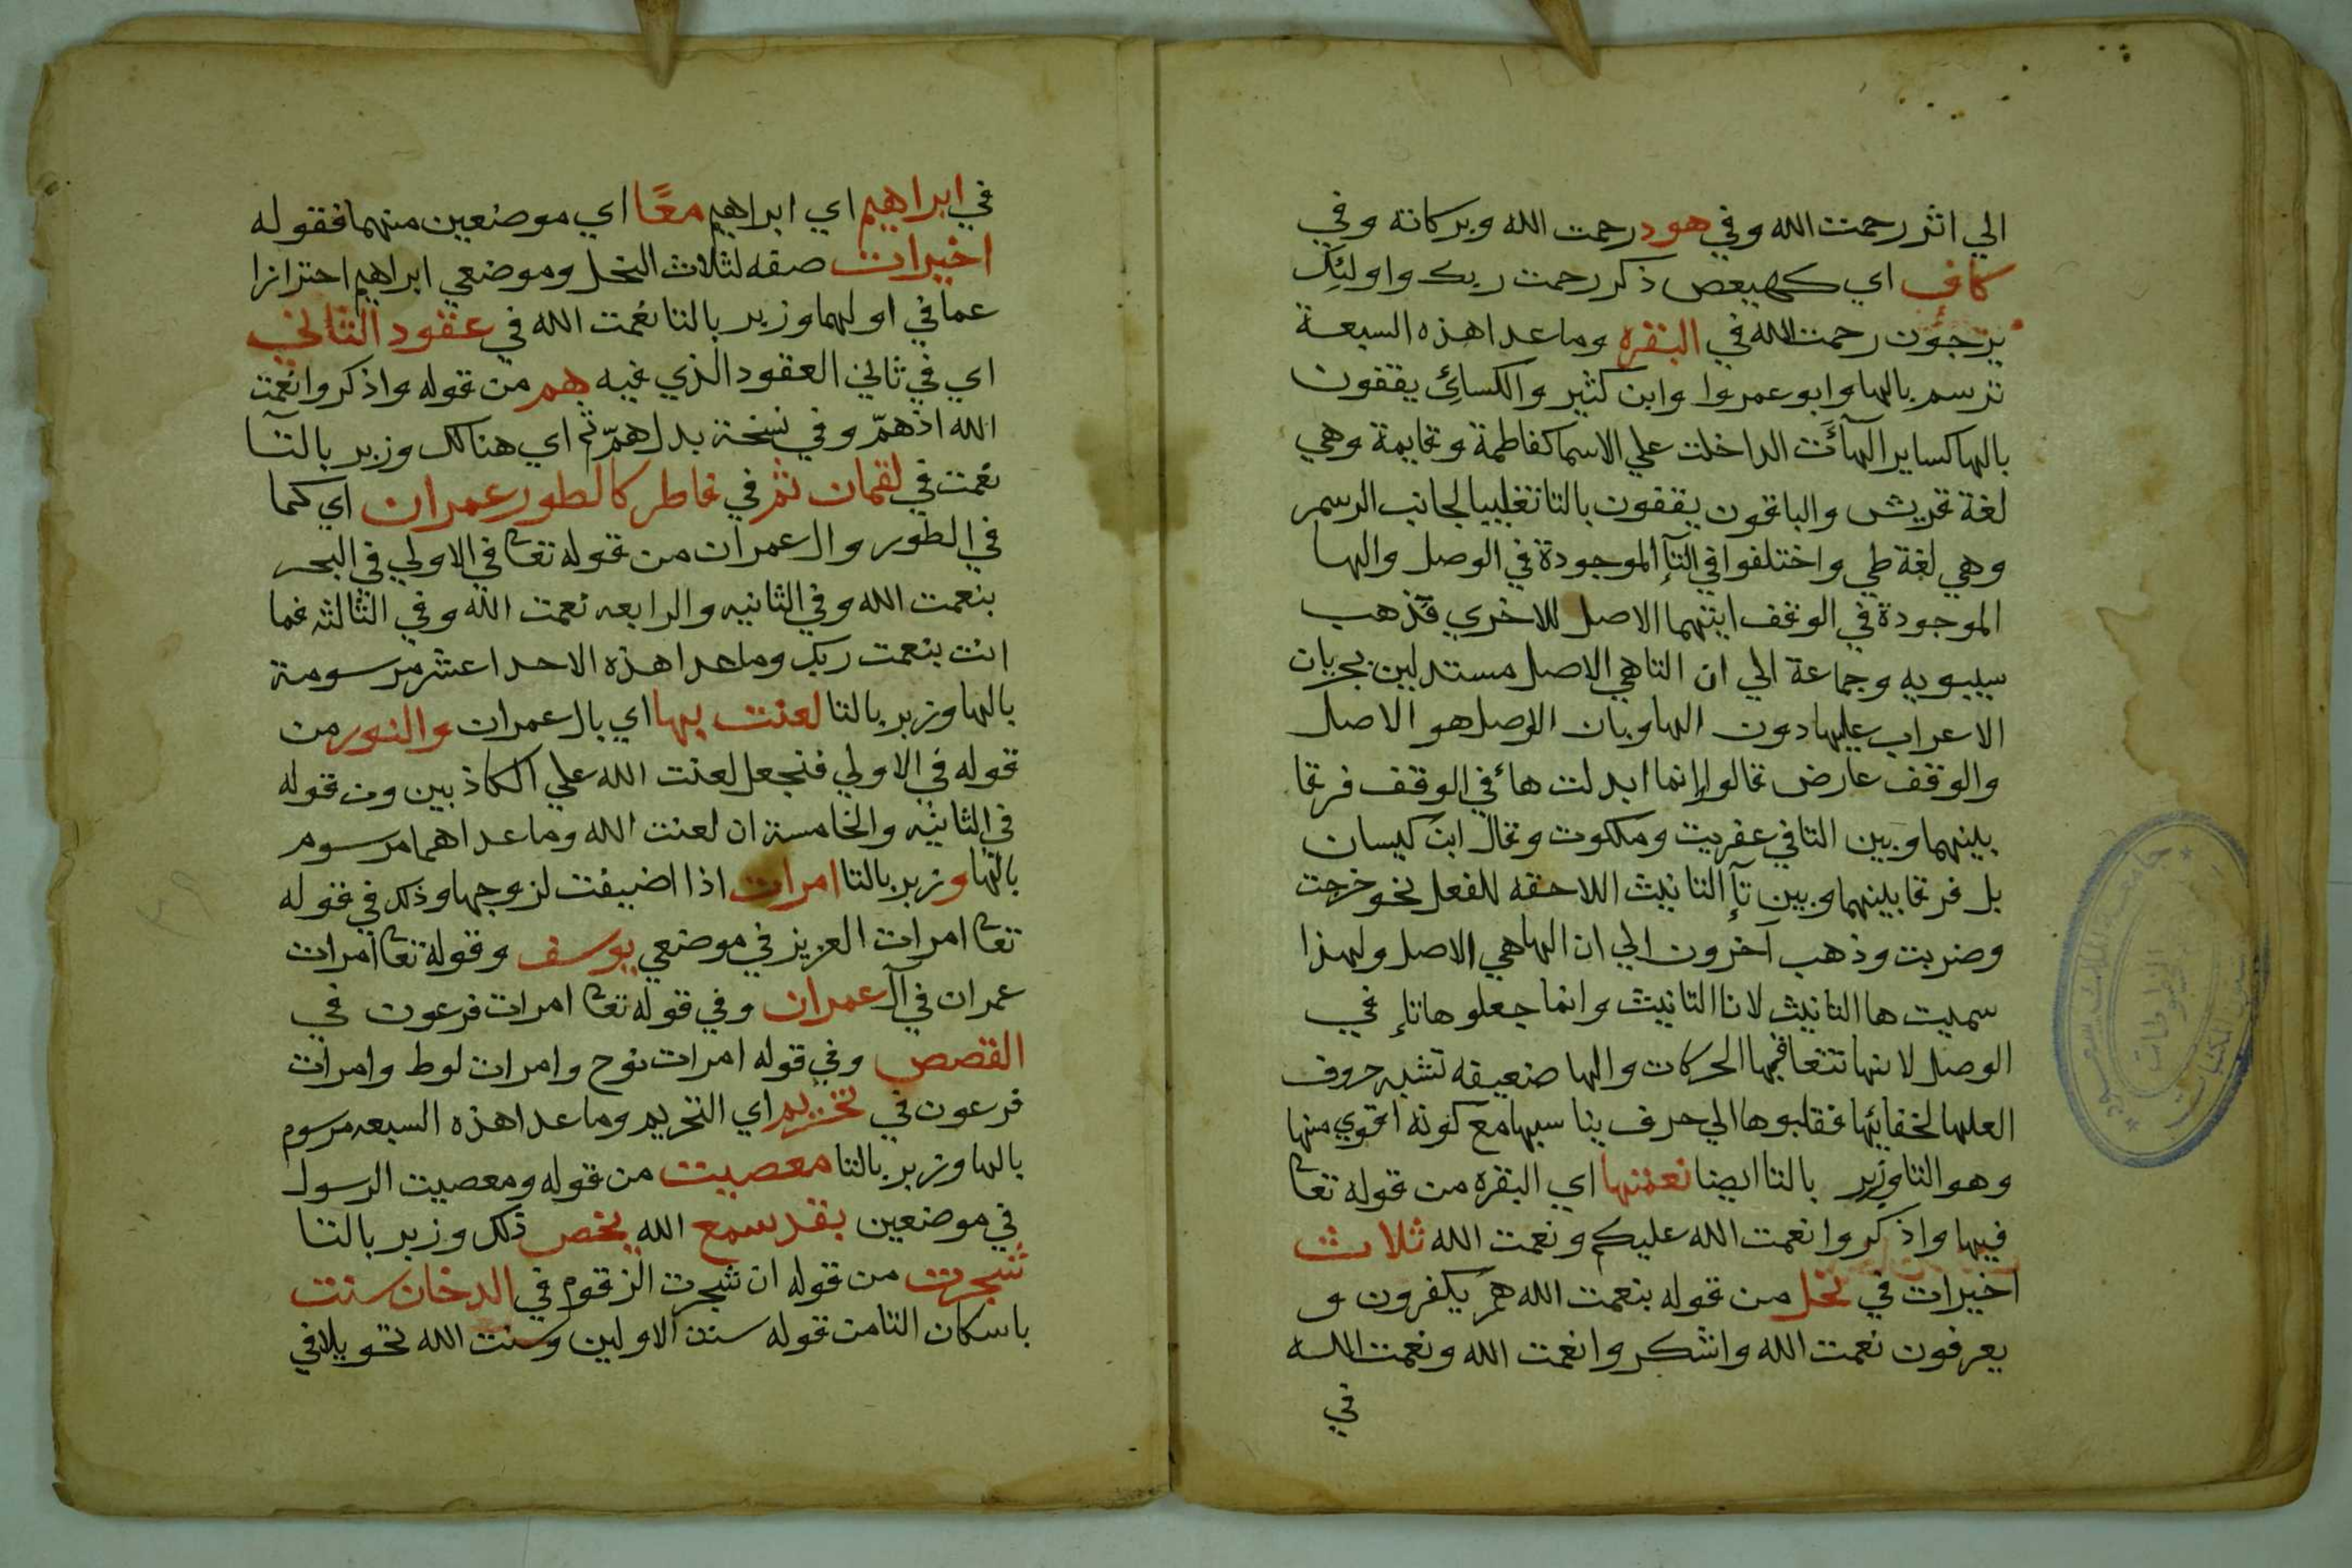 الي اثر رحمت الله وفي هود رحمت الله وبركاته وفي
كاف اي كهيعص ذكر رحمت ربك واولئك
يرجون رحمت الله في البقره وما عدا هذه السبعة
ترسم بالها وابو عمروا وابن كثير والكسائي يقفون
بالها كساير الهآءت الداخلت علي الاسما كفاطمة وقايمة وهي
لغة قريش والباقون يقفون بالتا تغليبا لجانب الرسم
وهي لغة طي واختلفوا في التآ الموجودة في الوصل والها
الموجودة في الوقف ايتهما الاصل للاخري فذهب
سيبويه وجماعة الي ان التا هي الاصل مستدلين بجريان
الاعراب عليها دون الها وبان الوصل هو الاصل
والوقف عارض قالوا وانما ابدلت هاء في الوقف فرقا
بينهما وبين التا في عفريت وملكوت وقال ابن كيسان
بل فرقا بينهما وبين تآ التانيث اللاحقه للفعل نحو خرجت
وضربت وذهب آخرون الي ان الها هي الاصل ولهذا
سميت ها التانيث لا تا التانيث وانما جعلوها تاء في
الوصل لانها تتعاقبها الحركات والها ضعيفه تشبه حروف
العلها لخفائها فقلبوها الي حرف يناسبها مع كونه اقوي منها
وهو التا وزبر بالتا ايضا نعمتها اي البقره من قوله تعا
فيها واذكروا نعمت الله عليكم ونعمت الله ثلاث
اخيرات في نحل من قوله بنعمت الله هم يكفرون و
يعرفون نعمت الله واشكروا نعمت الله ونعمت الله
في
في ابراهيم اي ابراهيم معًا اي موضعين منهما فقوله
اخيرات صفه لثلاث النحل وموضعي ابراهيم احترازا
عما في اولهما وزبر بالتا نعمت الله في عقود الثاني
اي في ثاني العقود الذي فيه هم من قوله واذكروا نعمت
الله اذ همّ وفي نسخة بدل همّ ثم اي هناك وزبر بالتآ
نعمت في لقمان ثم في فاطر كالطور عمران اي كما
في الطور وال عمران من قوله تعا في الاولي في البحر
بنعمت الله وفي الثانيه والرابعه نعمت الله وفي الثالثه فما
انت بنعمت ربك وما عدا هذه الاحدا عشر مرسومة
بالها وزبر بالتا لعنت بها اي بال عمران والنور من
قوله في الاولي فنجعل لعنت الله علي الكاذبين ومن قوله
في الثانيه والخامسة ان لعنت الله وما عداهما مرسوم
بالها وزبر بالتا امرات اذا اضيفت لزوجها وذلك في قوله
تعا امرات العزيز في موضعي يوسف وقوله تعا امرات
عمران في آل عمران وفي قوله تعا امرات فرعون في
القصص وفي قوله امرات نوح وامرات لوط وامرات
فرعون في تحريم اي التحريم وما عدا هذه السبعه مرسوم
بالها وزبر بالتا معصيت من قوله ومعصيت الرسول
في موضعين بقد سمع الله يخص ذلك وزبر بالتا
شجرت من قوله ان شجرت الزقوم في الدخان سنت
باسكان التا من قوله سنت الاولين وسنت الله تحويلا في